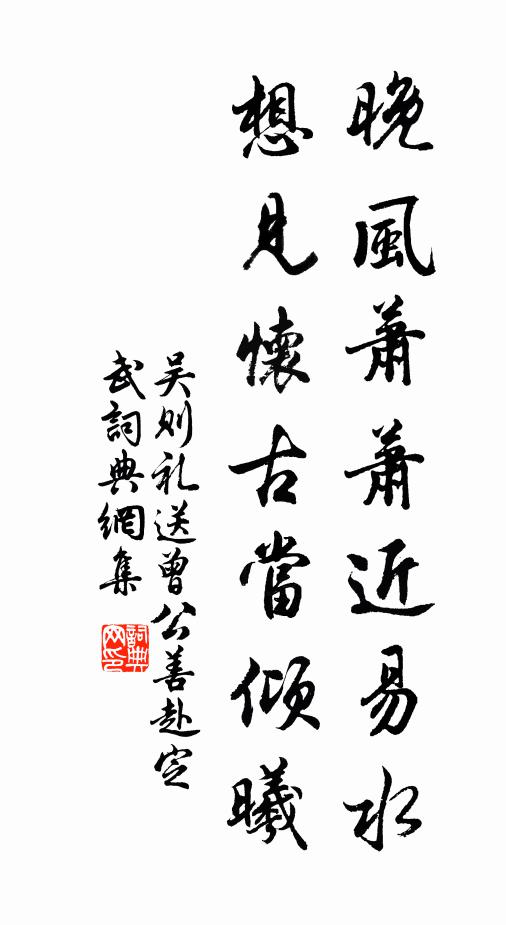 晚風蕭蕭近易水
想見懷古當傾曦
吳則礼送曾公善赴定
武詞典網集
詞典网印